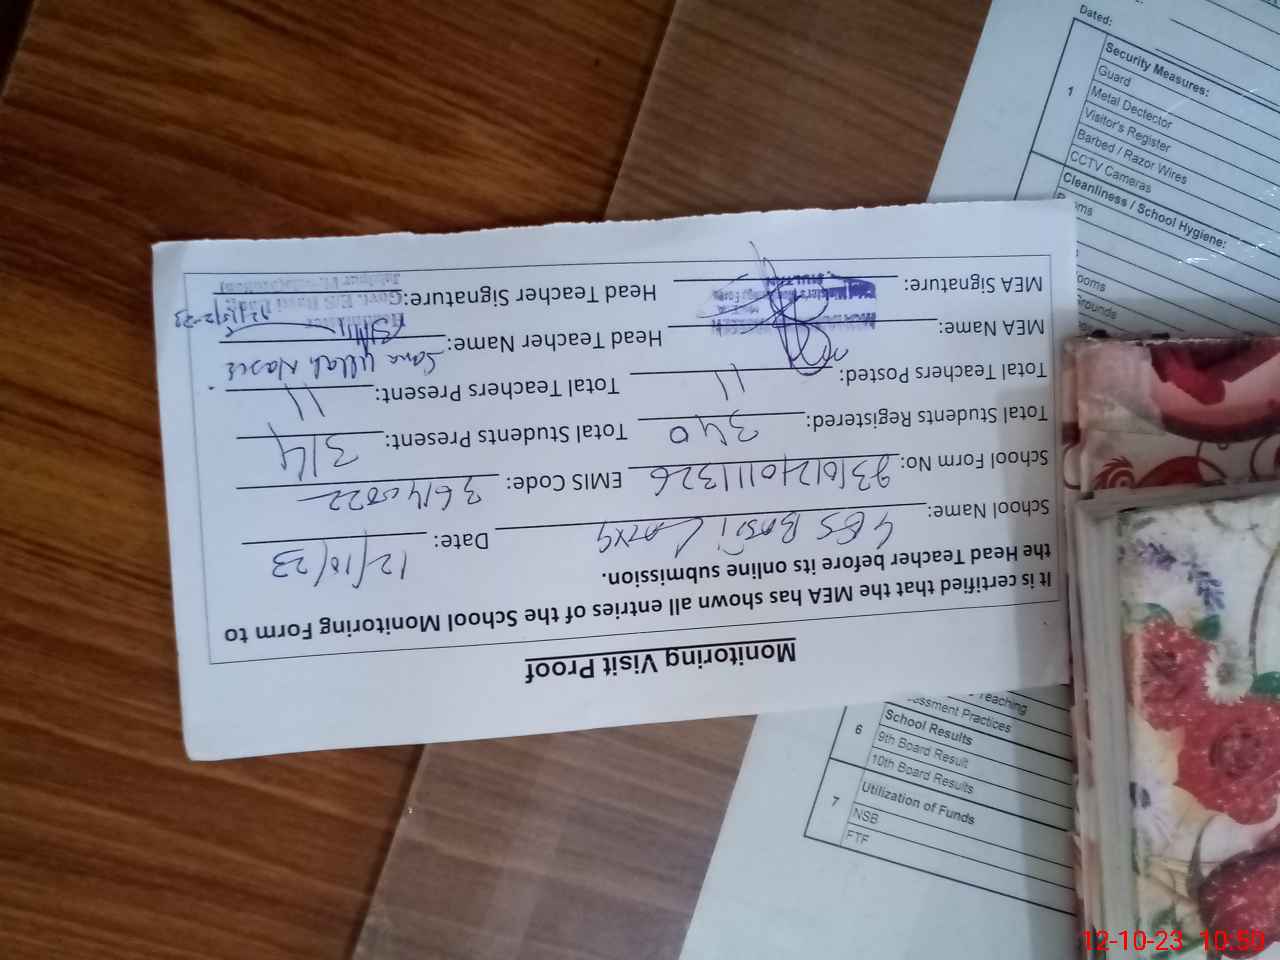 Monitoring Visit Proof
It is certified that the MEA has shown all entries of the School Monitoring Form to
the Head Teacher before its online submission.
School Name: GES Basti Date: 12/10/23
School Form No: EMIS Code:
Total Students Registered: 340 Total Students Present: 314
Total Teachers Posted: 11 Total Teachers Present: 11
MEA Name: Head Teacher Name: Sana Ullah
MEA Signature: Head Teacher Signature:
Dated:
1 Security Measures:
Guard
Metal Dectector
Visitor's Register
Barbed / Razor Wires
CCTV Cameras
Cleanliness / School Hygiene:
Teaching
Practices
6 School Results
9th Board Result
10th Board Results
7 Utilization of Funds
NSB
FTF
12-10-23 10:50